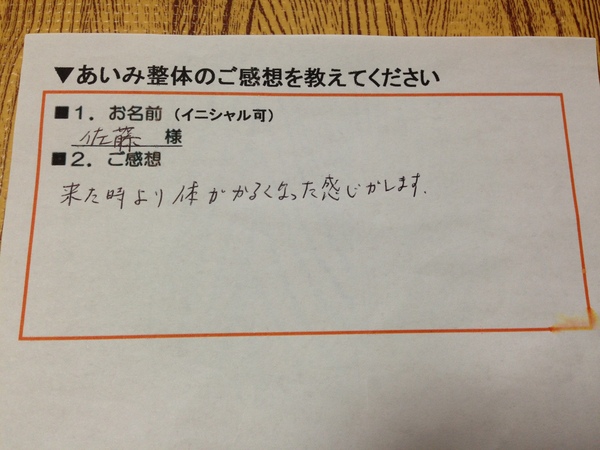 ▼あいみ整体のご感想を教えてください
■1. お名前（イニシャル可）
佐藤 様
■2. ご感想
来た時より体がかるくなった感じがします.